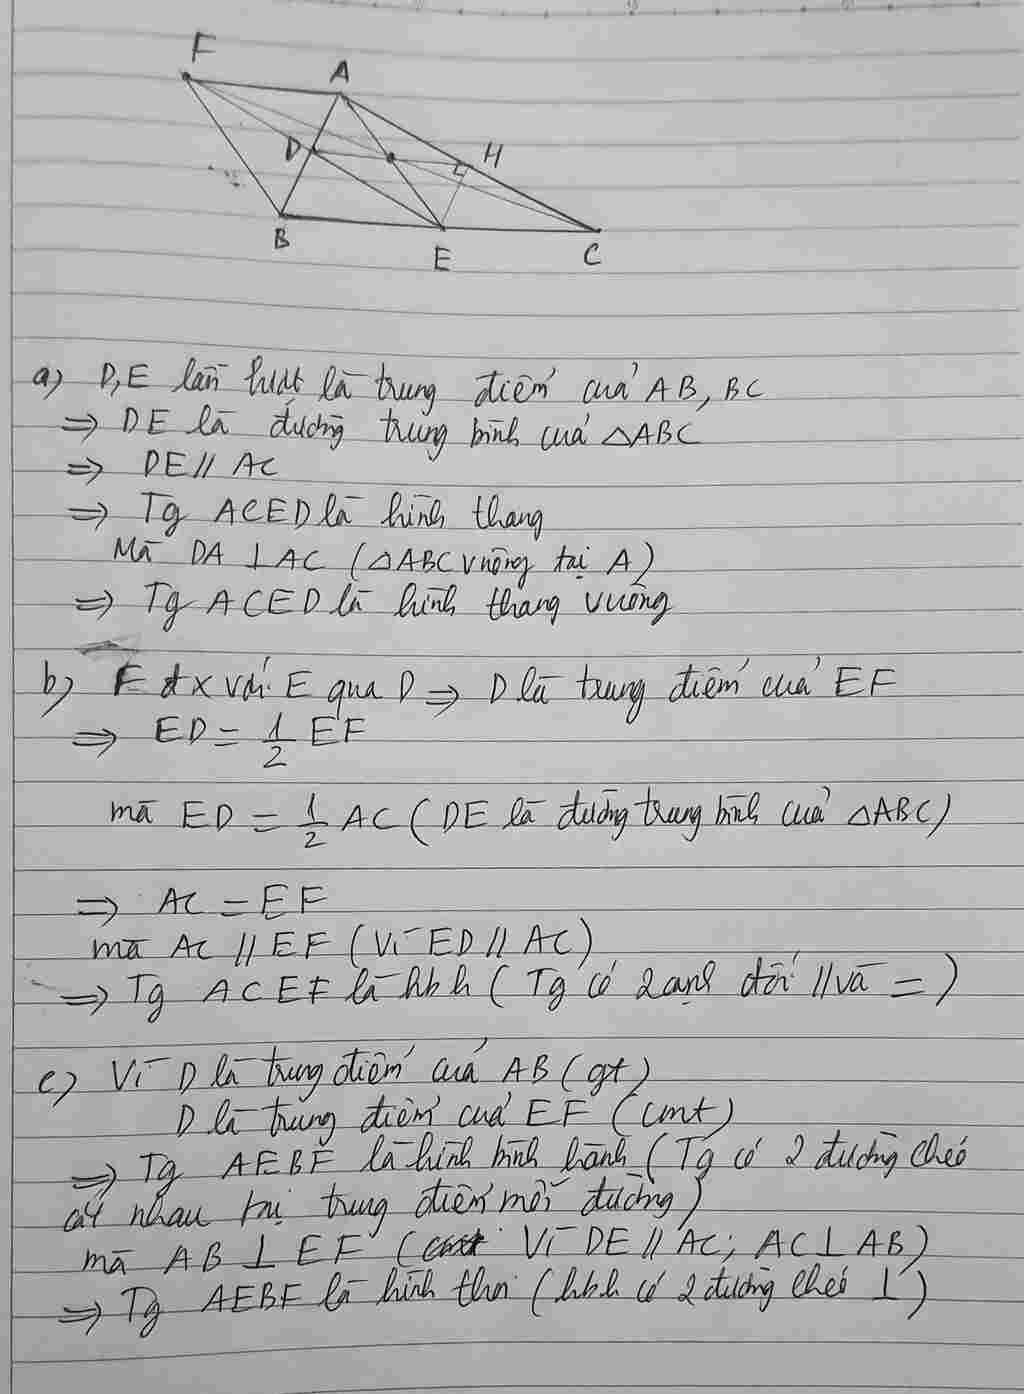 F
A
D
H
B
E
C
a) D,E lần lượt là trung điểm của AB, BC
=> DE là đường trung bình của △ABC
=> DE // AC
=> Tg ACED là hình thang
Mà DA ⊥ AC (△ABC vuông tại A)
=> Tg ACED là hình thang vuông
b) F đx với E qua D => D là trung điểm của EF
=> ED = 1/2 EF
mà ED = 1/2 AC (DE là đường trung bình của △ABC)
=> AC = EF
mà AC // EF (Vì ED // AC)
=> Tg ACEF là hbh (Tg có 2 cạnh đối // và =)
c) Vì D là trung điểm của AB (gt)
D là trung điểm của EF (cmt)
=> Tg AEBF là hình bình hành (Tg có 2 đường chéo
cắt nhau tại trung điểm mỗi đường)
mà AB ⊥ EF (Vì DE // AC; AC ⊥ AB)
=> Tg AEBF là hình thoi (hbh có 2 đường chéo ⊥)